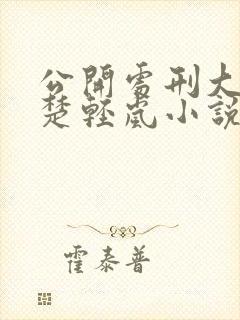 公開處刑大
楚輕嵐小說
霍泰普